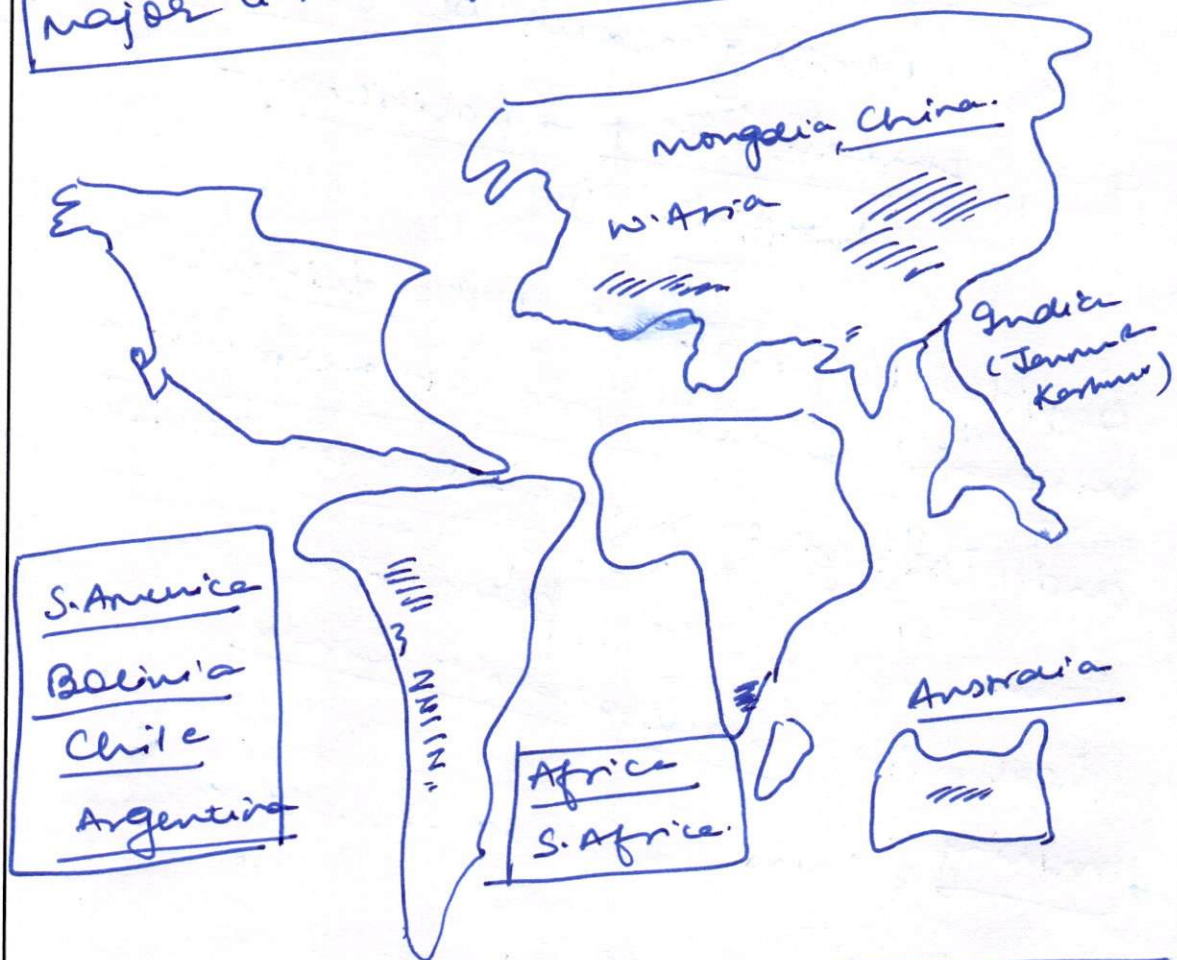 major
Mongolia, China.
W. Asia
India
(Jammu &
Kashmir)
S. America
Bolivia
Chile
Argentina
Africa
S. Africa.
Australia